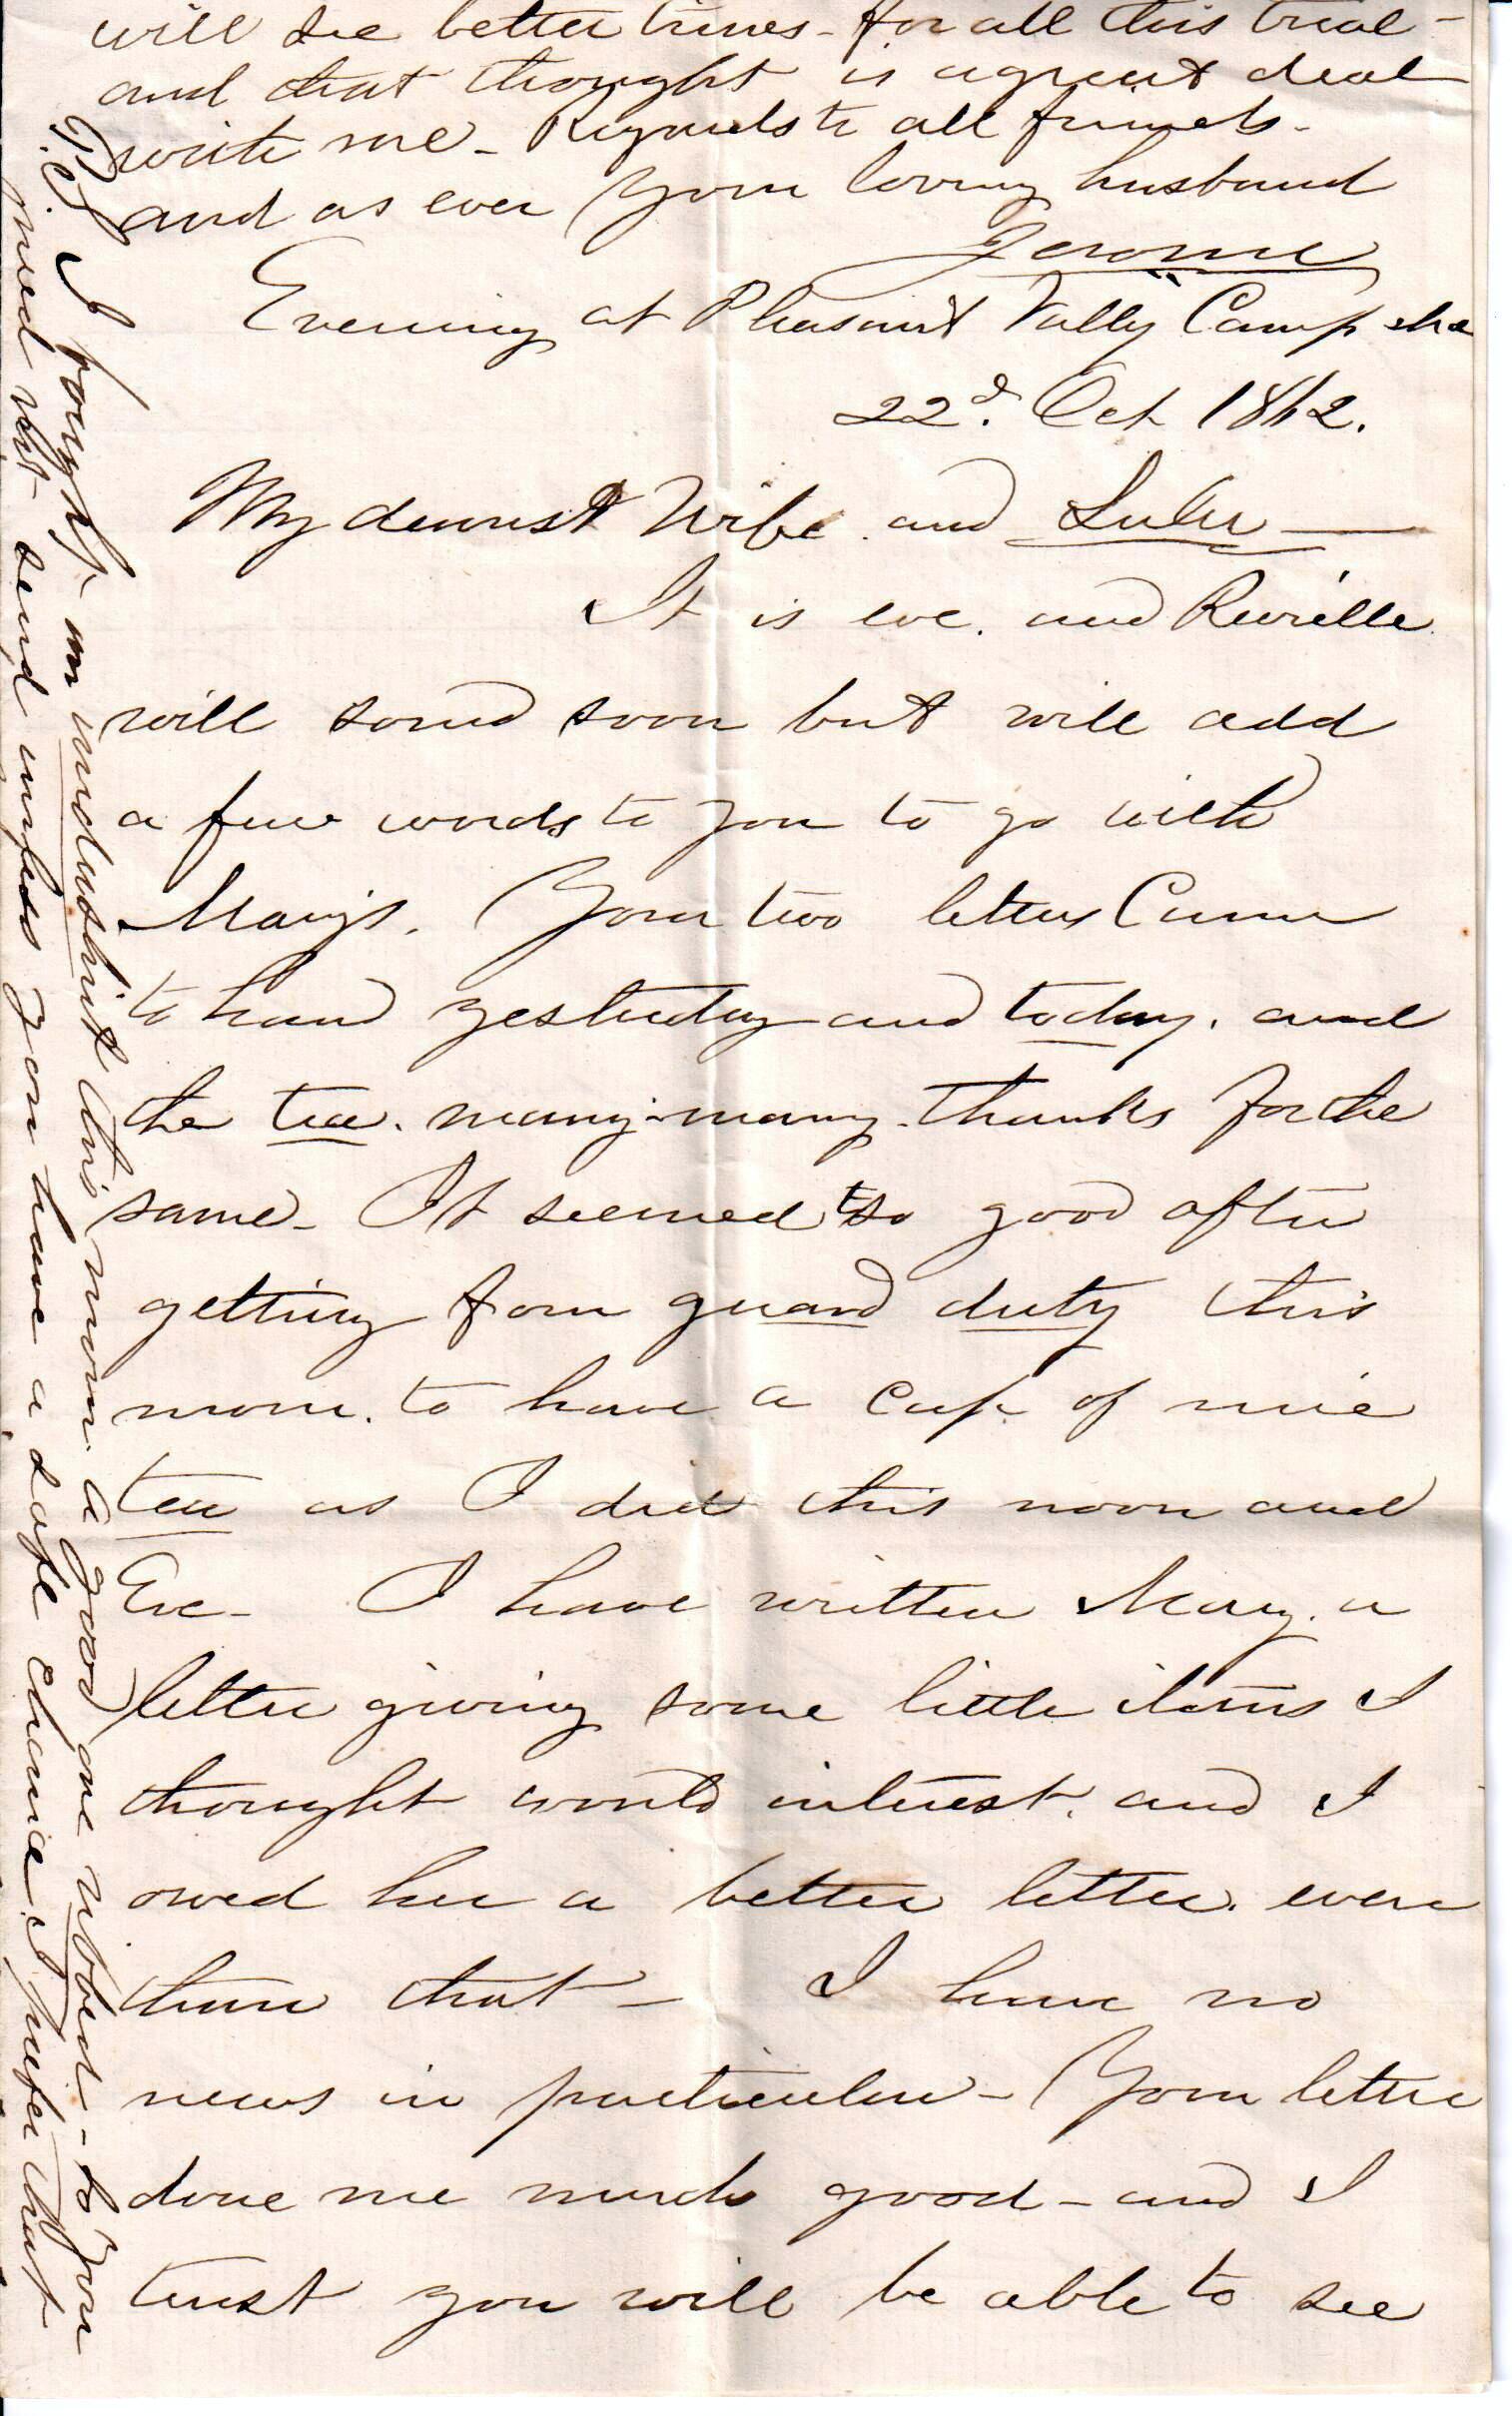 will see better times - for all this trial -
and that thought is a great deal
write me - Regards to all friends -
and as ever Your loving husband
Jerome
Evening at Pleasant Vally Camp
22d. Oct 1862.
My dearest Wife and Lulu —
It is eve. and Reveille
will sound soon but will add
a few words to you to go with
Mary's. Your two letters Came
to hand yesterday and today. and
the tea. many-many-thanks for the
same - It seemed so good after
getting from guard duty this
morn. to have a cup of nice
tea as I did this noon and
Eve - I have written Mary. a
letter giving some little items I
thought would interest. and I
owed her a better letter. even
than that - I have no
news in particular - Your letter
done me much good - and I
trust you will be able to see
P.S. I bought an undershirt this morn a good one ribbed - So you
need not send unless you have a safe chance I prefer that